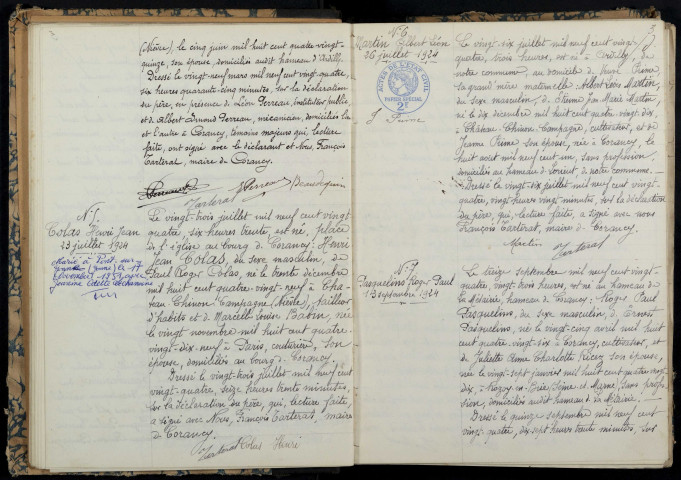 (Nièvre), le cinq juin mil huit cent quatre-vingt-
quinze, son épouse, domiciliés audit hameau d'Ardilly.
Dressé le vingt-neuf mars mil neuf cent vingt-quatre,
six heures quarante-cinq minutes, sur la déclaration
du père, en présence de Léon Perreau, instituteur public
et d'Albert Perreau, mécanicien, domiciliés l'un
et l'autre à Corancy, témoins majeurs qui, lecture
faite, ont signé avec le déclarant et Nous, François
Tarterat, maire de Corancy.
Perreau Beaudequin
Tarterat
N° 5
Colas Henri Jean
23 juillet 1924
Marié à Pont-sur-
Yonne (Yonne) le 17
novembre 1951 avec
Le vingt-trois juillet mil neuf cent vingt
quatre, six heures trente, est né, place
de l'église au bourg de Corancy, Henri
Jean Colas, du sexe masculin, de
Paul Roger Colas, né le trente décembre
mil huit cent quatre-vingt-neuf à Châ-
teau-Chinon-Campagne (Nièvre), tailleur
d'habits et de Marcelle Louise Babin, née
le vingt novembre mil huit cent quatre-
vingt-dix-neuf à Paris, couturière, son
épouse, domiciliés au bourg de Corancy.
Dressé le vingt-trois juillet mil neuf cent
vingt-quatre, seize heures trente minutes,
sur la déclaration du père, qui, lecture faite,
a signé avec Nous, François Tarterat, maire
de Corancy.
Tarterat Colas Henri
3
N° 6
Martin Albert Léon
26 juillet 1924
ACTES DE L'ÉTAT CIVIL
PAPIER SPÉCIAL
2F
Le vingt-six juillet mil neuf cent vingt
quatre, trois heures, est né à
notre commune, au domicile de
sa grand'mère maternelle Albert Léon Martin,
du sexe masculin, de Pierre Jean Marie Martin,
né le dix décembre mil huit cent quatre-vingt-dix,
à Château-Chinon-Campagne, cultivateur, et de
Jeanne son épouse, née à Corancy, le
huit août mil neuf cent un, sans profession,
domiciliés au hameau de de notre commune.
Dressé le vingt-six juillet mil neuf cent vingt-
quatre, vingt heures vingt minutes, sur la déclaration
du père, qui, lecture faite, a signé avec nous
François Tarterat, maire de Corancy.
Martin Tarterat
N° 7
Pasquelins Roger Paul
13 septembre 1924
Le treize septembre mil neuf cent vingt-
quatre, vingt-trois heures, est né au hameau de
la Métairie, hameau de Corancy, Roger Paul
Pasquelins, du sexe masculin, de Ernest
Pasquelins, né le vingt-cinq avril mil huit
cent quatre-vingt-six à Corancy, cultivateur, et
de Juliette Charlotte Ricey son épouse,
née le vingt-sept janvier mil huit cent quatre-vingt-
dix à Rozoy-en-Brie (Seine-et-Marne), sans profes-
sion, domiciliés audit hameau de la Métairie.
Dressé le quinze septembre mil neuf cent
vingt-quatre, dix-sept heures trente minutes, sur